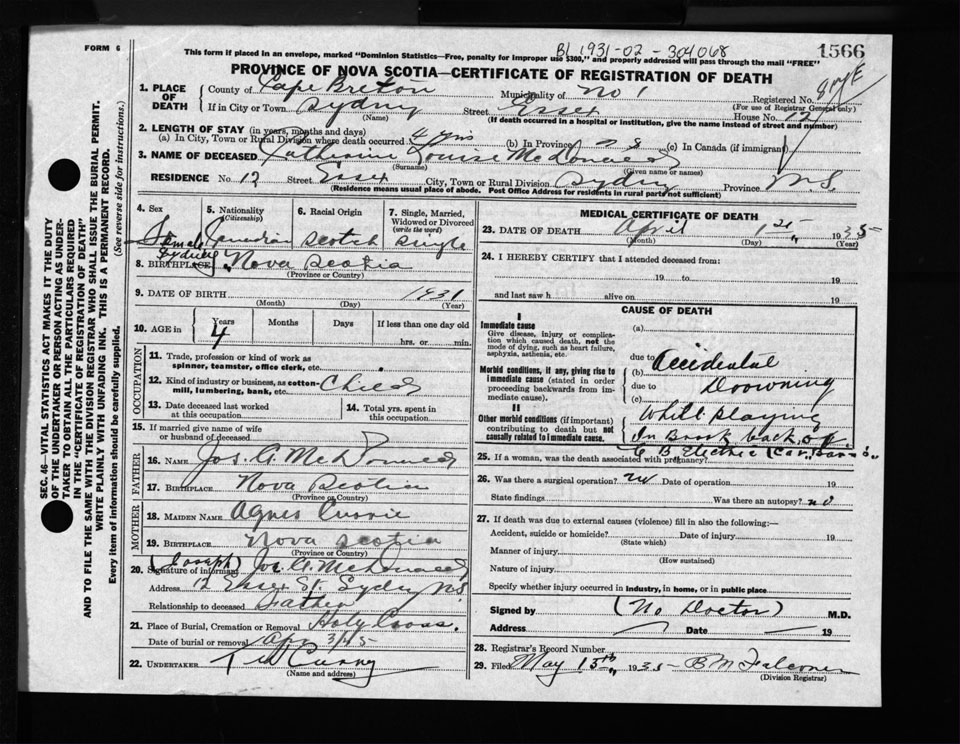 BL 1931-02-304068
FORM 6
1566
This form if placed in an envelope, marked "Dominion Statistics—Free, penalty for improper use $300," and properly addressed will pass through the mail "FREE"
PROVINCE OF NOVA SCOTIA—CERTIFICATE OF REGISTRATION OF DEATH
1. PLACE OF DEATH
County of Cape Breton Municipality of No 1 Registered No.
(For use of Registrar General only)
If in City or Town Sydney Street Essex House No. 12
(Name) (If death occurred in a hospital or institution, give the name instead of street and number)
2. LENGTH OF STAY (in years, months and days)
(a) In City, Town or Rural Division where death occurred 4 yrs (b) In Province (c) In Canada (if immigrant)
3. NAME OF DECEASED Catherine Louise McDonald
(Surname) (Given name or names)
RESIDENCE No. 12 Street Essex City, Town or Rural Division Sydney Province N.S.
(Residence means usual place of abode. Post Office Address for residents in rural parts not sufficient)
4. Sex Female
5. Nationality (Citizenship) Canadian
6. Racial Origin Scotch
7. Single, Married, Widowed or Divorced (write the word) Single
8. BIRTHPLACE Sydney Nova Scotia
(Province or Country)
9. DATE OF BIRTH 1931
(Month) (Day) (Year)
10. AGE in Years 4 Months Days If less than one day old
hrs. or min.
OCCUPATION
11. Trade, profession or kind of work as spinner, teamster, office clerk, etc.
12. Kind of industry or business, as cotton-mill, lumbering, bank, etc. Child
13. Date deceased last worked at this occupation
14. Total yrs. spent in this occupation
15. If married give name of wife or husband of deceased
FATHER
16. NAME Jos. A. McDonald
17. BIRTHPLACE Nova Scotia
(Province or Country)
MOTHER
18. MAIDEN NAME Agnes Currie
19. BIRTHPLACE Nova Scotia
(Province or Country)
20. Signature of informant (Joseph) Jos. A. McDonald
Address 12 Essex St. Sydney N.S.
Relationship to deceased Father
21. Place of Burial, Cremation or Removal Holy Cross.
Date of burial or removal Apr 3/35
22. UNDERTAKER T W Curry
(Name and address)
MEDICAL CERTIFICATE OF DEATH
23. DATE OF DEATH April 1st 1935
(Month) (Day) (Year)
24. I HEREBY CERTIFY that I attended deceased from:
19 to 19
and last saw h alive on 19
CAUSE OF DEATH
I
Immediate cause
Give disease, injury or complication which caused death, not the mode of dying, such as heart failure, asphyxia, asthenia, etc.
(a)
due to
Morbid conditions, if any, giving rise to immediate cause (stated in order proceeding backwards from immediate cause).
(b) Accidental
due to Drowning
(c)
II
Other morbid conditions (if important) contributing to death but not causally related to immediate cause.
While playing
In Brook back of
C B Electric (Car Barns)
25. If a woman, was the death associated with pregnancy?
26. Was there a surgical operation? no Date of operation 19
State findings Was there an autopsy? no
27. If death was due to external causes (violence) fill in also the following:—
Accident, suicide or homicide? Date of injury 19
(State which)
Manner of injury
(How sustained)
Nature of injury
Specify whether injury occurred in industry, in home, or in public place
Signed by (No Doctor) M.D.
Address Date 19
28. Registrar's Record Number
29. Filed May 15th 1935 B M Falconer
(Division Registrar)
SEC. 46- VITAL STATISTICS ACT MAKES IT THE DUTY
OF THE UNDERTAKER OR PERSON ACTING AS UNDER-
TAKER TO OBTAIN ALL THE PARTICULARS REQUIRED
IN THE "CERTIFICATE OF REGISTRATION OF DEATH"
AND TO FILE THE SAME WITH THE DIVISION REGISTRAR WHO SHALL ISSUE THE BURIAL PERMIT.
WRITE PLAINLY WITH UNFADING INK. THIS IS A PERMANENT RECORD.
Every item of information should be carefully supplied. (See reverse side for instructions.)